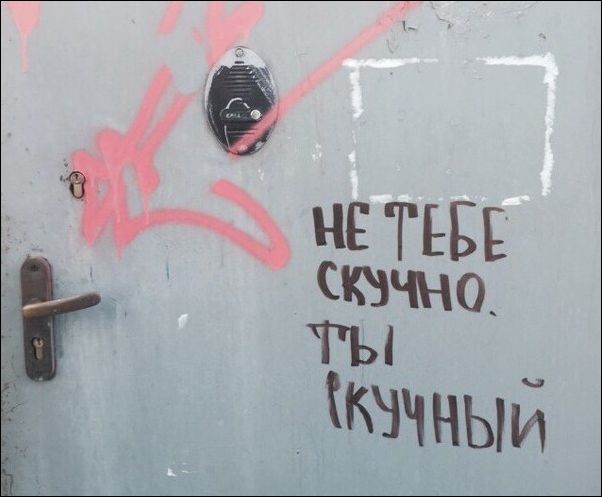 CALL
НЕ ТЕБЕ
СКУЧНО.
ТЫ
СКУЧНЫЙ